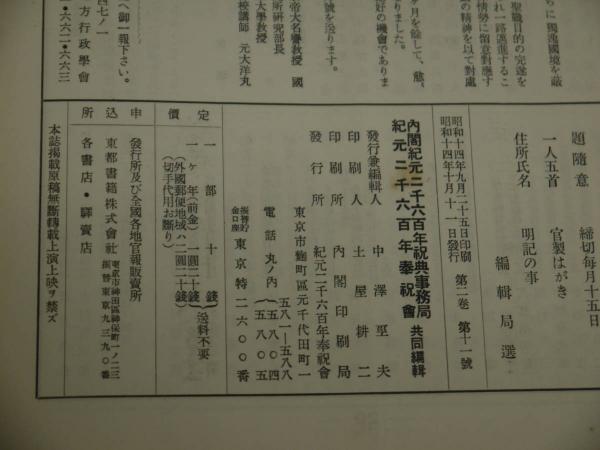 ちに獨逸國境を蔽
聖戰目的の完遂を
れ一路邁進するこ
情勢に留意對應す
の精神を以て對處
ヶ月を餘して、愈
りました。
好の機會でありま
號を送ります。
帝大名譽教授 國
所研究部長
大學教授
校講師 元大洋丸
へ御一報下さい。
四七ノ一
方行政學會
・六六二・六六三
題隨意 締切毎月十五日
一人五首 官製はがき
住所氏名 明記の事
編輯局選
昭和十四年九月二十五日印刷
昭和十四年十月十一日發行
第二卷 第十一號
內閣紀元二千六百年祝典事務局
紀元二千六百年奉祝會
共同編輯
發行兼編輯人 中澤堊夫
印刷人 土屋耕二
印刷所 內閣印刷局
發行所 紀元二千六百年奉祝會
東京市麴町區元千代田町一
電話丸ノ內
五八一―五八八
五八〇四
五八〇五
振替貯金口座 東京特二六〇〇番
定價
一部 十錢
一ヶ年(前金) 一圓二十錢
(外國郵便地域ハ二圓二十錢)
送料不要
(切手代用お斷り)
申込所
發行所及び全國各地官報販賣所
東都書籍株式會社
東京市神田區神保町一ノ二三
振替東京九三九〇番
各書店・驛賣店
本誌揭載原稿無斷轉載上演上映ヲ禁ズ